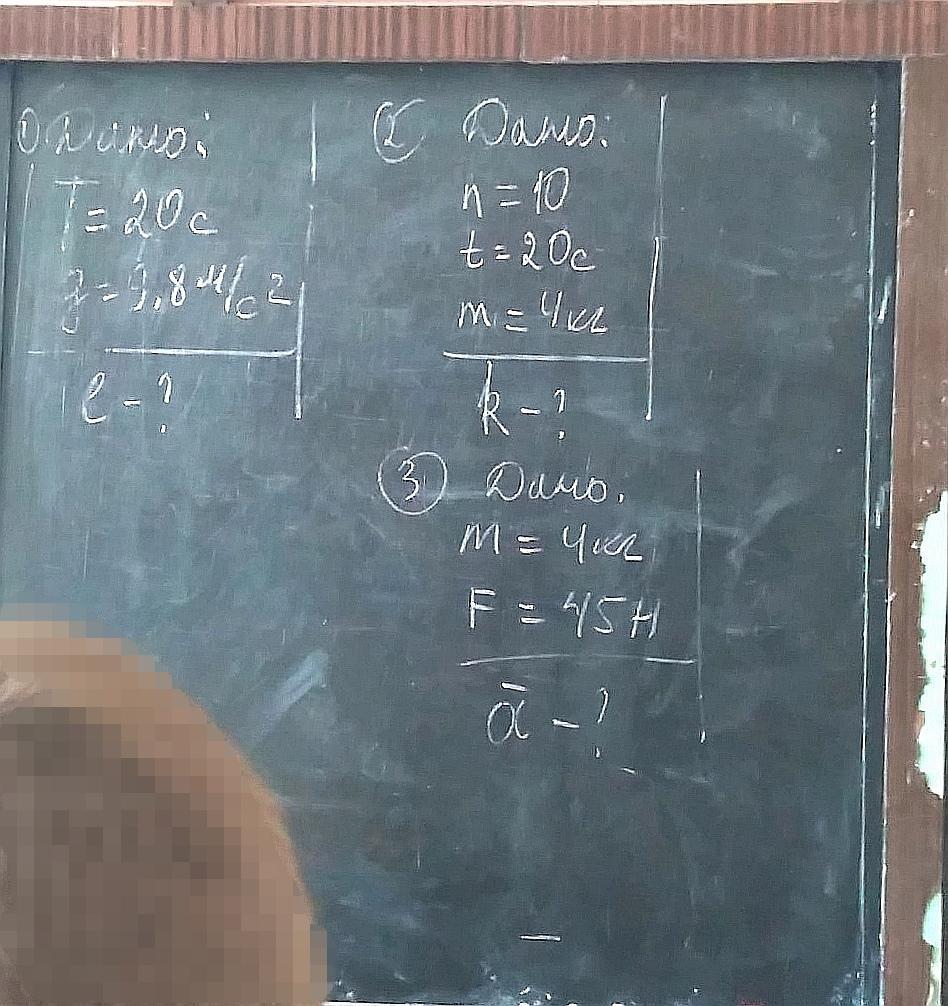 1) Дано:
T = 20с
g = 9,8 м/с²
l - ?
② Дано:
n = 10
t = 20с
m = 4кг
k - ?
③ Дано.
m = 4кг
F = 45Н
a̅ - ?